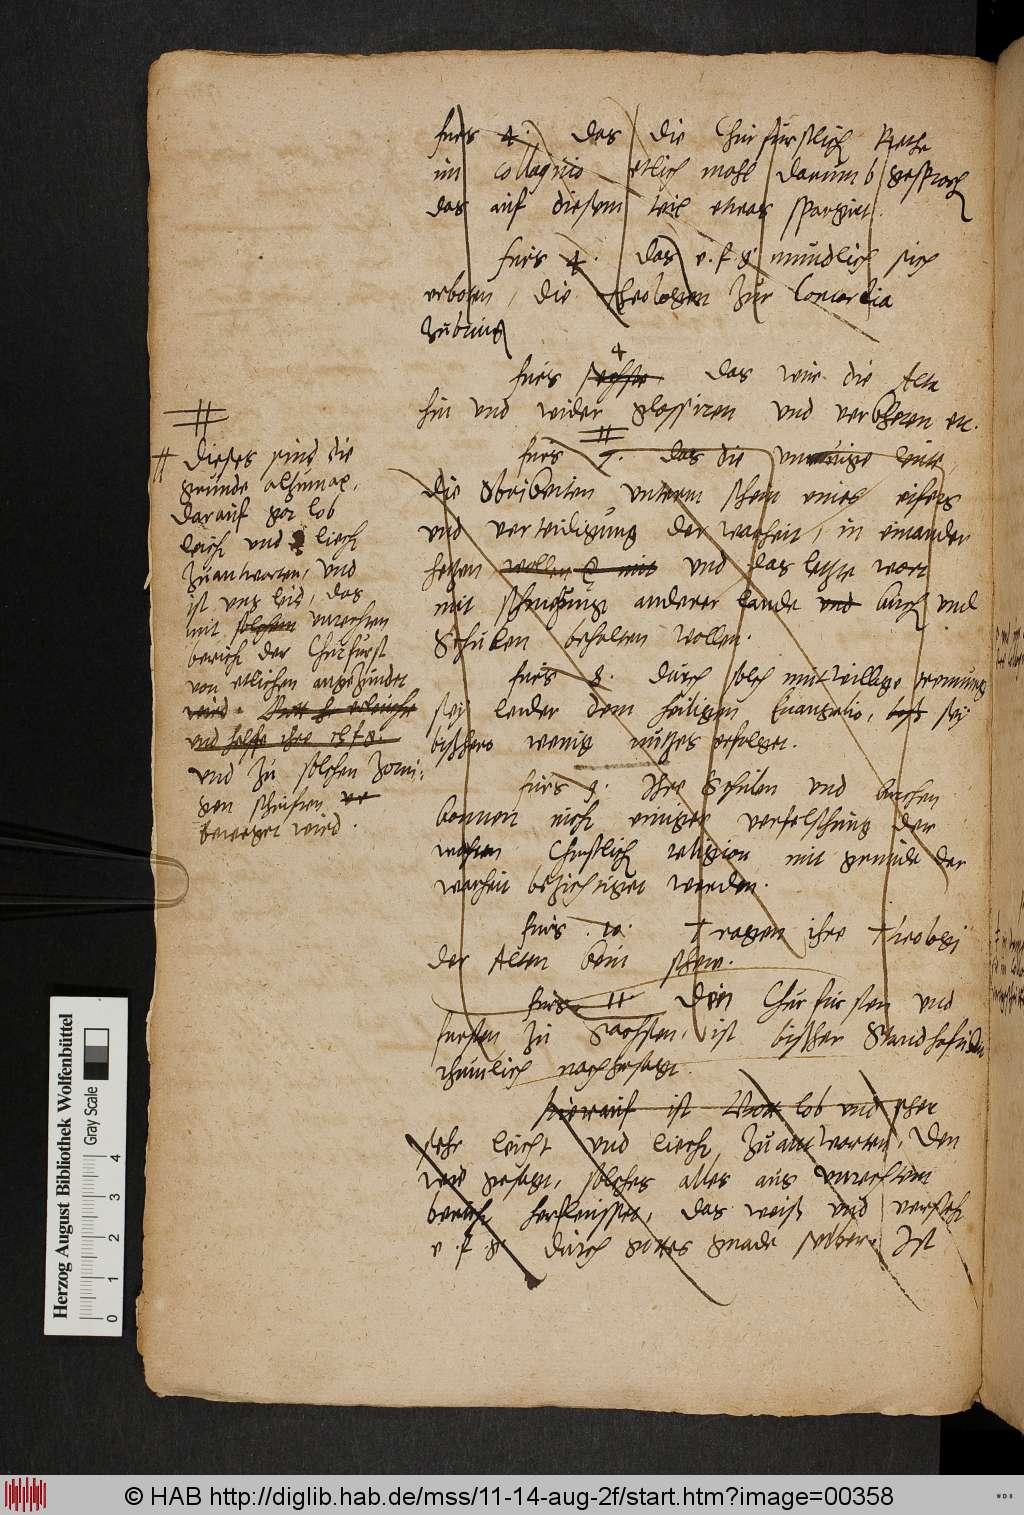 furs 4. das die Churfurstlich Rethe
im colloquio etlich mahl darumb gesproch
das auf diesem teil etwas spargirt.
furs 4. das e. f. g. mundlich sich
erboten, die theologen zur Concordia
zubring
furs sechste 4 das wir die Alta
hin und wider glossiren und verkheren etc.
furs 7. das die unruige leute,
die Skribenten unterm schein eines eifers
und verteidigung der warheit, in einander
hetzen wollen mit und das letzte wort
mit schmehung anderer lande und kirch und
Schulen behalten wollen.
furs 8. durch solch mutwillige trennung
sey leider dem heiligen Euangelio, sey
bishero wenig nutzes erfolget.
furs 9. Ihre Schulen und kirchen
konnen nicht einiger verfelschung der
wahren Christlich religion mit grunde der
warheit bezichtiget werden.
furs 10. Tragen ihre theologi
der Alten kein schew.
furs 11. Den Churfursten und
fursten zu Sachssen, ist bisher Standhafftiklich
rhumlich nachgesagt.
Hierauf ist Gott lob und
sehr leicht und liecht zuantworten. Den
wie gesagt, solches alles aus unrechtem
bericht herfleusset, das weis und versteht
e. f. g. durch gottes gnade selber. Ist
Dieses sind die
grunde alzumal,
darauf got lob
leicht und liecht
zuantworten, und
ist uns leid, das
mit solchem unrechten
bericht der Churfurst
von etlichen angezundet
wird. Gott erleuchte
und helffe ihre ch f g.
und zu solchen zorni-
gen schriften ve
beweget wird.
Herzog August Bibliothek Wolfenbüttel
Gray Scale
0 1 2 3 4
© HAB http://diglib.hab.de/mss/11-14-aug-2f/start.htm?image=00358